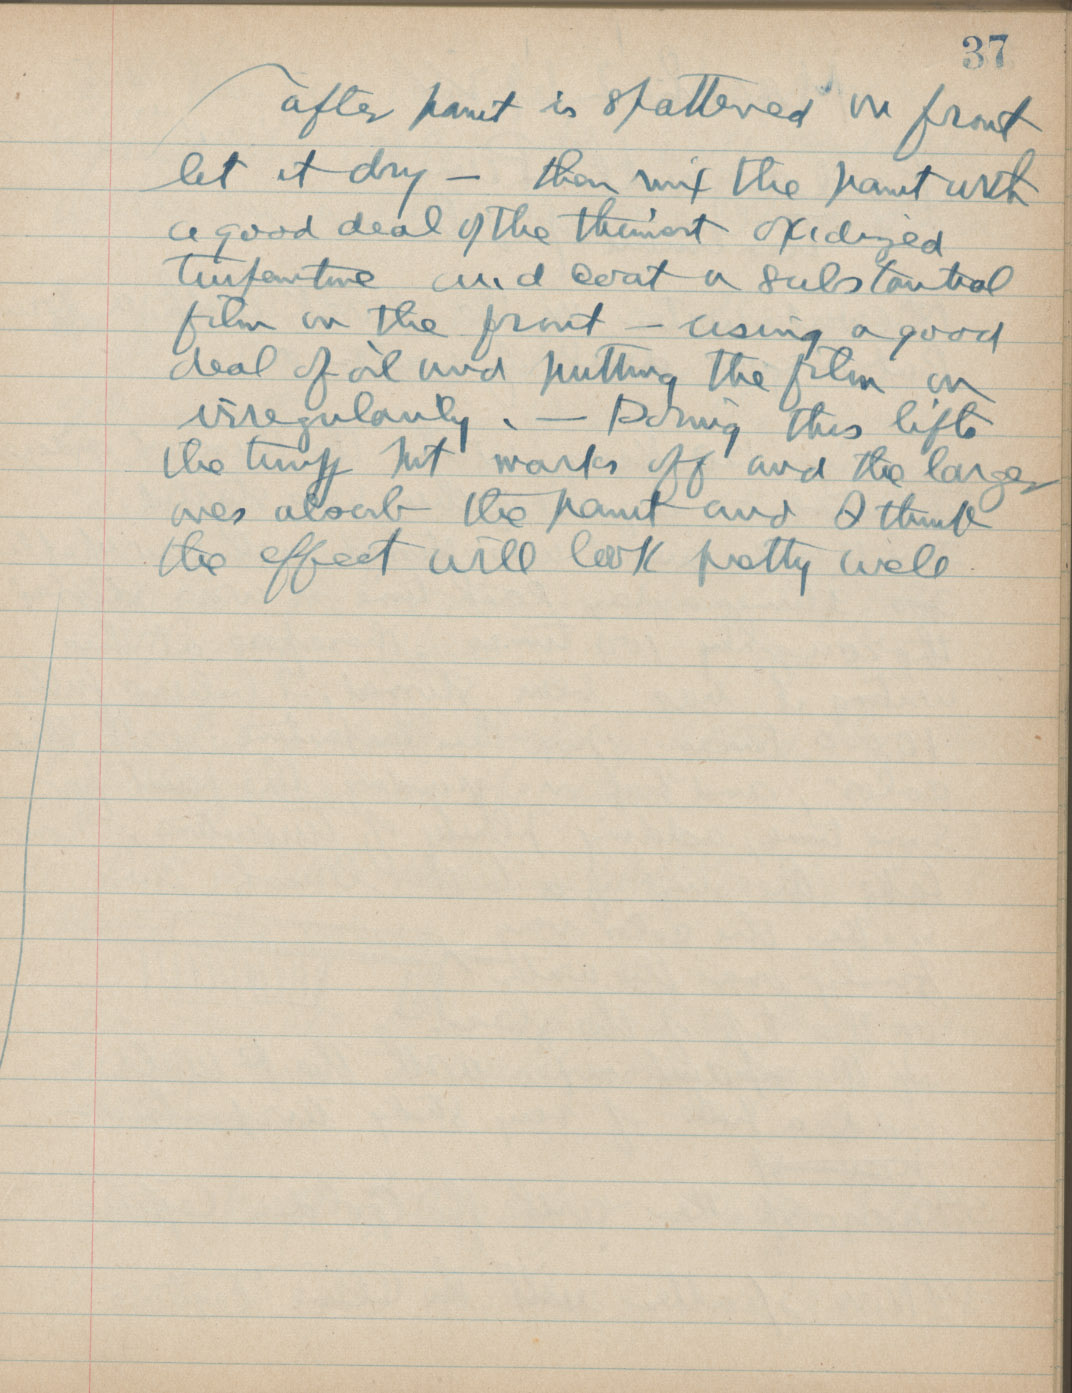 37
after paint is spattered on front
let it dry — then mix the paint with
a good deal of the thinnest oxidized
turpentine and coat a substantial
film on the front — using a good
deal of oil and putting the film on
irregularly. — Doing this lifts
the tiny pit marks off and the larger
ones absorb the paint and I think
the effect will look pretty well